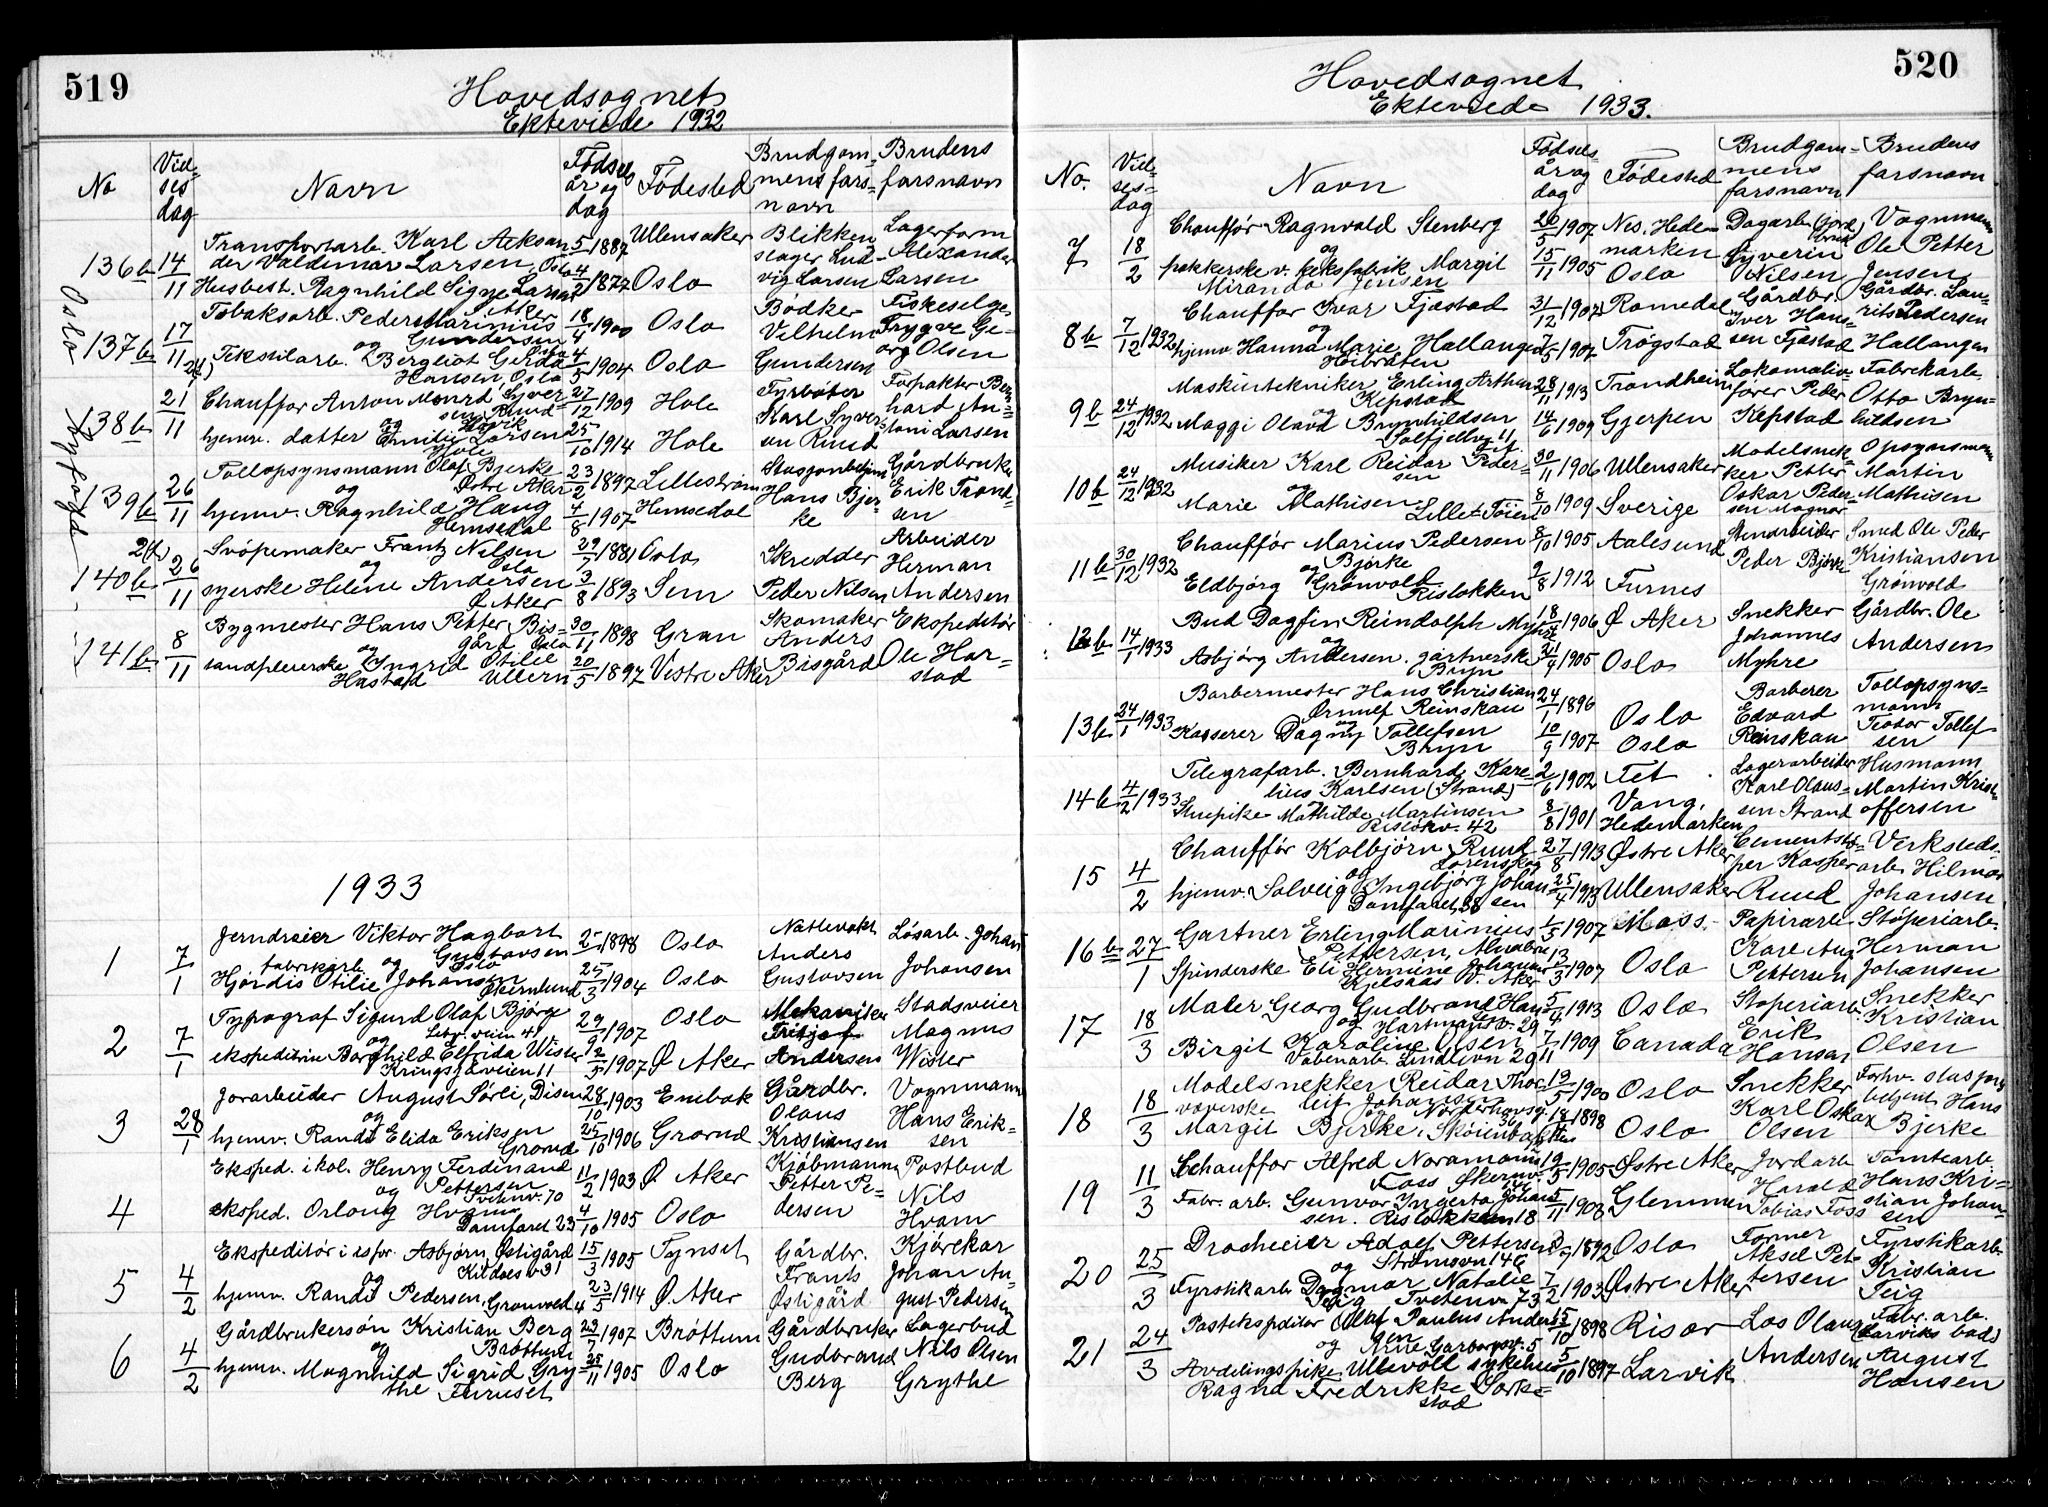 519
Hovedsognet
Ekteviede 1932
No
Viel-
ses
dag
Navn
Fødsels
år og
dag
Fødested
Brudgom-
mens fars-
navn
Brudens
farsnavn
136b 14/11
Transportarb. Karl Aeksan
der Valdemar Larsen, Oslo
Husbest. Ragnhild Signe Larsen
Ø Aker
5/5 1887 Ullensaker
4/2 1877 Oslo
Blikken
slager Lud-
vig Larsen
Lagerform
Alexander
Larsen
Oslo
137b 17/11
Tobaksarb. Peder Marinius
Gundersen
og Oslo
Tekstilarb. Bergliot Gerda
Hansen, Oslo
18/4 1900 Oslo
4/5 1904 Oslo
Bødker
Vilhelm
Gundersen
Fiskeselger
Trygve Ge-
org Olsen
138b 21/11
Chauffør Anton Syver
sen Ruud
og Høvik
hjemv. datter Emilie Larsen
Hole
27/12 1909 Hole
25/10 1914 Hole
Fyrbøter
Karl Syver-
sen Ruud
Forpakter Bern
hard An-
toni Larsen
139b 26/11
Tollopsynsmann Olaf Bjerke
og Østre Aker
hjemv. Ragnhild Haug
Hemsedal
23/2 1897 Lillestrøm
4/8 1907 Hemsedal
Stasjonsbetjent
Hans Bjer-
ke
Gårdbruker
Erik Trond-
sen
140b 26/11
Svøpemaker Frantz Nilsen
og Oslo
syerske Helene Andersen
Ø Aker
29/7 1881 Oslo
3/8 1893 Sem
Skredder
Peder Nilsen
Arbeider
Herman
Andersen
141b 8/11
Bygmester Hans Petter Bis-
gård Oslo
og
Ingrid Otilie
Hastad Ullern
30/11 1898 Gran
20/5 1897 Vestre Aker
Skomaker
Anders
Bisgård
Ekspeditør
Ole Har-
stad
1933
1 7/1
Jerndreier Viktor Hagbart
Gustavsen
fabrikarb og Oslo
Hjørdis Otilie Johansen
Økernlund
1898 Oslo
25/3 1904 Oslo
Nattevakt
Anders
Gustavsen
Løsarb. Johan
Johansen
2 7/1
Typograf Sigurd Olaf Bjørg
og
ekspeditrise Borghild Elfrida Wister
Kringsjåveien 11
29/9 1907 Oslo
2/5 1907 Ø Aker
Mekaniker
Fritjof
Andersen
Stadsveier
Magnus
Wister
3 28/1
Jorarbeider August Sørli, Disen
og
hjemv. Randi Elida Eriksen
Grorud
28/10 1903 Enebak
25/10 1906 Grorud
Gårdbr.
Olaus
Kristiansen
Vognmann
Hans Erik-
sen
4
Eksped. i kol. Henry Ferdinand
Pettersen
og Tvetenv. 70
eksped. Orlaug Hvam
Damfaret 23
11/2 1903 Ø. Aker
4/10 1905 Oslo
Kjøbmann
Petter Pe-
dersen
Postbud
Nils
Hvam
5 4/2
Ekspeditør i Asbjørn Østigård
og Kildals v 31
hjemv. Randi Pedersen, Gronvold 4
15/3 1905 Tynset
23/5 1914 Ø. Aker
Gårdbr.
Frants
Østigård
Kjørekar
Johan Au-
gust Pedersen
6 4/2
Gårdbrukersøn Kristian Berg
og Brøttum
hjemv. Magnhild Sigrid Gry
the Furuset
23/7 1907 Brøttum
25/11 1905 Oslo
Gårdbruker
Gudbrand
Berg
Lagerbud
Nils Olsen
Grythe
520
Hovedsognet
Ekteviede 1933.
No.
Viel-
ses-
dag
Navn
Fødsels-
år og
dag
Fødested
Brudgom-
mens
farsnavn
Brudens
farsnavn
7 18/2
Chauffør Ragnvald Stenberg
og
pakkerske v. keksfabrik Margit
Miranda Jensen
26/5 1907 Nes, Hede-
marken
15/11 1905 Oslo
Dagarb. (jord
bruk)
Syverin
Nilsen
Vognmann
Ole Petter
Jensen
8b 7/12 1932
Chauffør Ivar Fjæstad
og
hjemv Hanna Marie Hallangen
Høibråten
31/12 1907 Romedal
7/5 1907 Trøgstad
Gårdbr.
Iver Hans-
sen Fjæstad
Gårdbr. Lau-
rits Pedersen
Hallangen
9b 24/12 1932
Maskintekniker Erling Arthur
Kipstad
og
Maggi Olava Brynhildsen
28/11 1913 Trondheim
14/6 1909 Gjerpen
Lokomotiv-
fører Peder
Kepstad
Fabrikarb.
Otto Bryn-
hildsen
10b 24/12 1932
Musiker Karl Reidar Peder-
sen
og
Marie Mathisen
Lille-Tøien
30/11 1906 Ullensaker
8/10 1909 Sverige
Modelsnek-
ker Petter
Oskar Peder-
sen Magnor
Opsynsmann
Martin
Mathisen
11b 30/12 1932
Chauffør Marius Pedersen
Bjørke
og
Eldbjørg Grønvold
Risløkken
8/10 1905 Aalesund
9/8 1912 Furnes
Peder Bjørke
Smed Ole Peder
Kristiansen
Grønvold
12b 14/1 1933
Bud Dagfin Reindolph Myhre
og
Asbjørg Andersen. gartnerske
Bryn
18/ 1906 Ø Aker
21/4 1905 Oslo
Snekker
Johannes
Myhre
Gårdbr. Ole
Andersen
13b 24/1 1933
Barbermester Hans Christian
Ørnulf Reinskau
og
Kasserer Dagny Tollefsen
Bryn
24/1 1896 Oslo
10/9 1907 Oslo
Barberer
Edvard
Reinskau
Tollopsyns-
mann
Teodor Tollef
sen
14b 4/2 1933
Telegrafarb. Bernhard Kare-
lius Karlsen (Strand)
Stuepike Mathilde Martinsen
Risløkv. 42
2/6 1902 Fet
8/8 1901 Vang,
Hedemarken
Lagerarbeider
Karl Olaus-
sen Strand
Husmann
Martin Krist
offersen
15 4/2
Chauffør Kolbjørn Ruud
og Lørenskog
hjemv. Solveig Ingebjørg Johan
sen
Damfaret 38
27/8 1913 Østre Aker
25/4 1913 Ullensaker
Cementstø-
per Kasper
Ruud
Verksteds-
arb. Hilmar
Johansen
16b 27/1
Gartner Erling Marinius
Pettersen, Alnabru
Spinderske Eli Hermene Johannes
Kjelsaas V. Aker
1/5 1907 Moss
13/3 1907 Oslo
Papirarb
Karl Aug.
Pettersen
Støperiarb.
Herman
Johansen
17 18/3
Maler Georg Gudbrand Han
sen
og Hartmannsv. 29
Birgit Karoline Olsen
Våbenarb. Lindtvn 29
5/4 1913 Oslo
7/11 1909 Canada
Støperiarb.
Erik
Hansen
Snekker
Kristian
Olsen
18 18/3
Modelsnekker Reidar Thor
leif Johansen
væverske og Nordenhovsg.
Margit Bjerke, Skøienbakken
19/5 1900 Oslo
18/8 1898 Oslo
Snekker
Karl Oskar
Olsen
Forhv. stasjons
betjent Hans
Bjerke
19 11/3
Chauffør Alfred Noramann
Foss Økernv.
Fabr. arb. Gunvor Ingerta Johan
sen. Risløkken 18
19/5 1905 Østre Aker
5/11 1908 Glemmen
Jordarb
Harald
Tobias Foss
Tomtearb
Hans Kri-
stian Johan-
sen
20 25/3
Drocheeier Adolf Pettersen
og Strømsvn 146
Fyrstikarb Dagmar Natalie
Teig Tvetenv 73
1892 Oslo
7/2 1903 Østre Aker
Former
Aksel Pet-
tersen
Fyrstikarb
Kristian
Teig
21 24/3
Postekspeditør Olaf Paulus Anders
og sen
Avdelingspike, Ullevoll sykehus
Ragna Fredrikke Sork-
stad
15/10 1898 Risør
5/10 1897 Larvik
Los Olaus
Andersen
Fabr. arb.
(Larviks bad)
August
Hansen